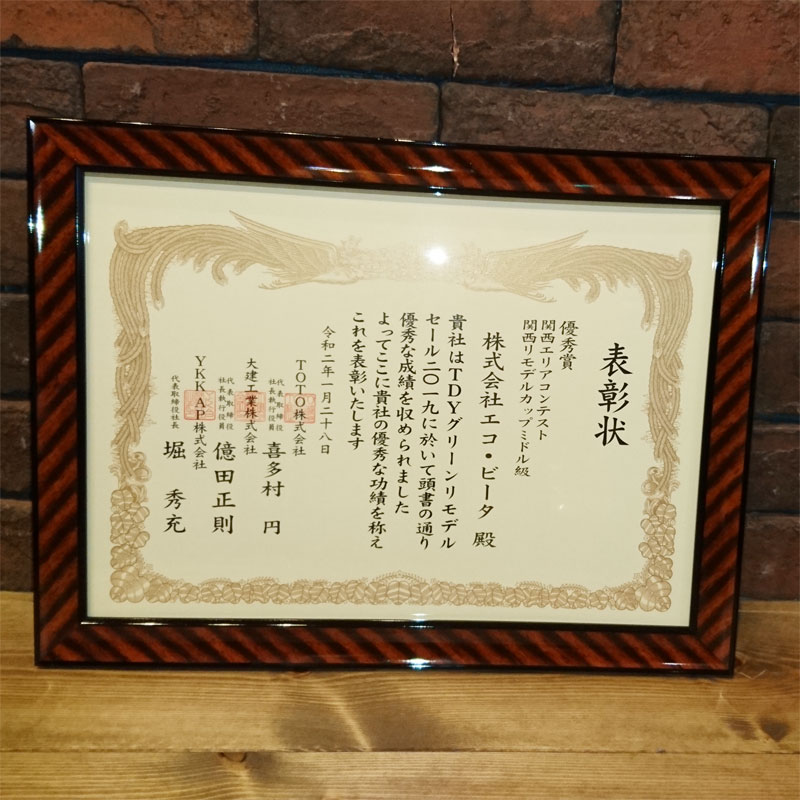 表彰状
優秀賞
関西エリアコンテスト
関西リモデルカップミドル級
株式会社エコ・ビータ 殿
貴社はTDYグリーンリモデル
セール二〇一九に於いて頭書の通り
優秀な成績を収められました
よってここに貴社の優秀な功績を称え
これを表彰いたします
令和二年一月二十八日
TOTO株式会社
代表取締役
社長執行役員
喜多村 円
大建工業株式会社
代表取締役
社長執行役員
億田正則
YKK AP株式会社
代表取締役社長
堀 秀充